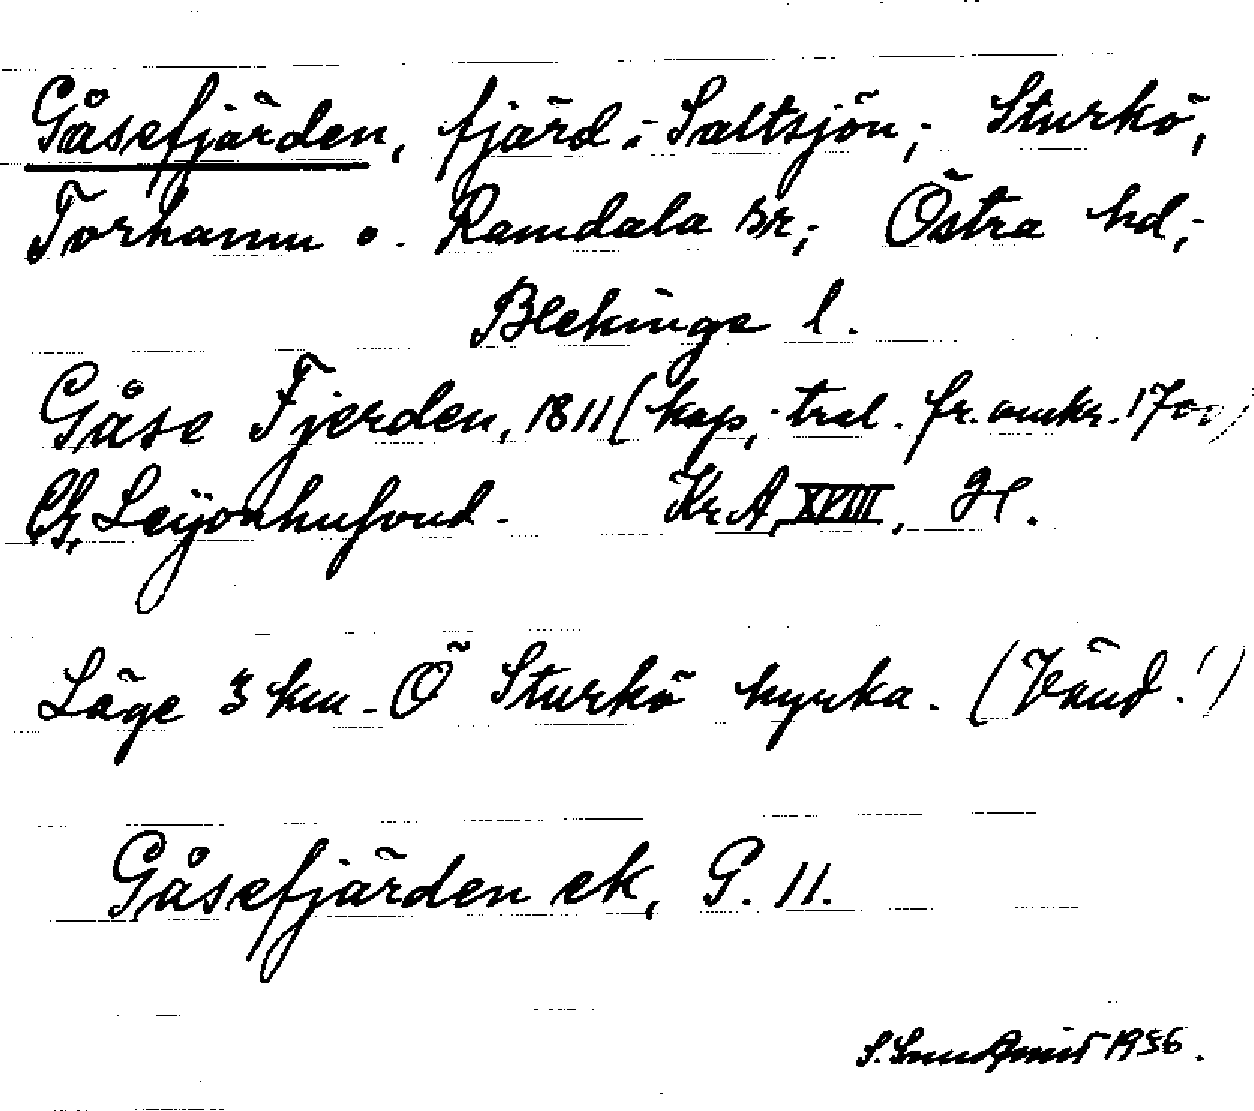 Gåsefjärden, fjärd i Saltsjön; Sturkö,
Torhamn o. Ramdala snr; Östra hd;
Blekinge l.
Gåse Fjerden, 1811 (kop, trol. fr. omkr. 1700)
Ch, Leijonhufvud. KrA, XVIII, H.
Läge 3 km Ö Sturkö kyrka. (Vänd!)
Gåsefjärden ek, G. 11.
1956.